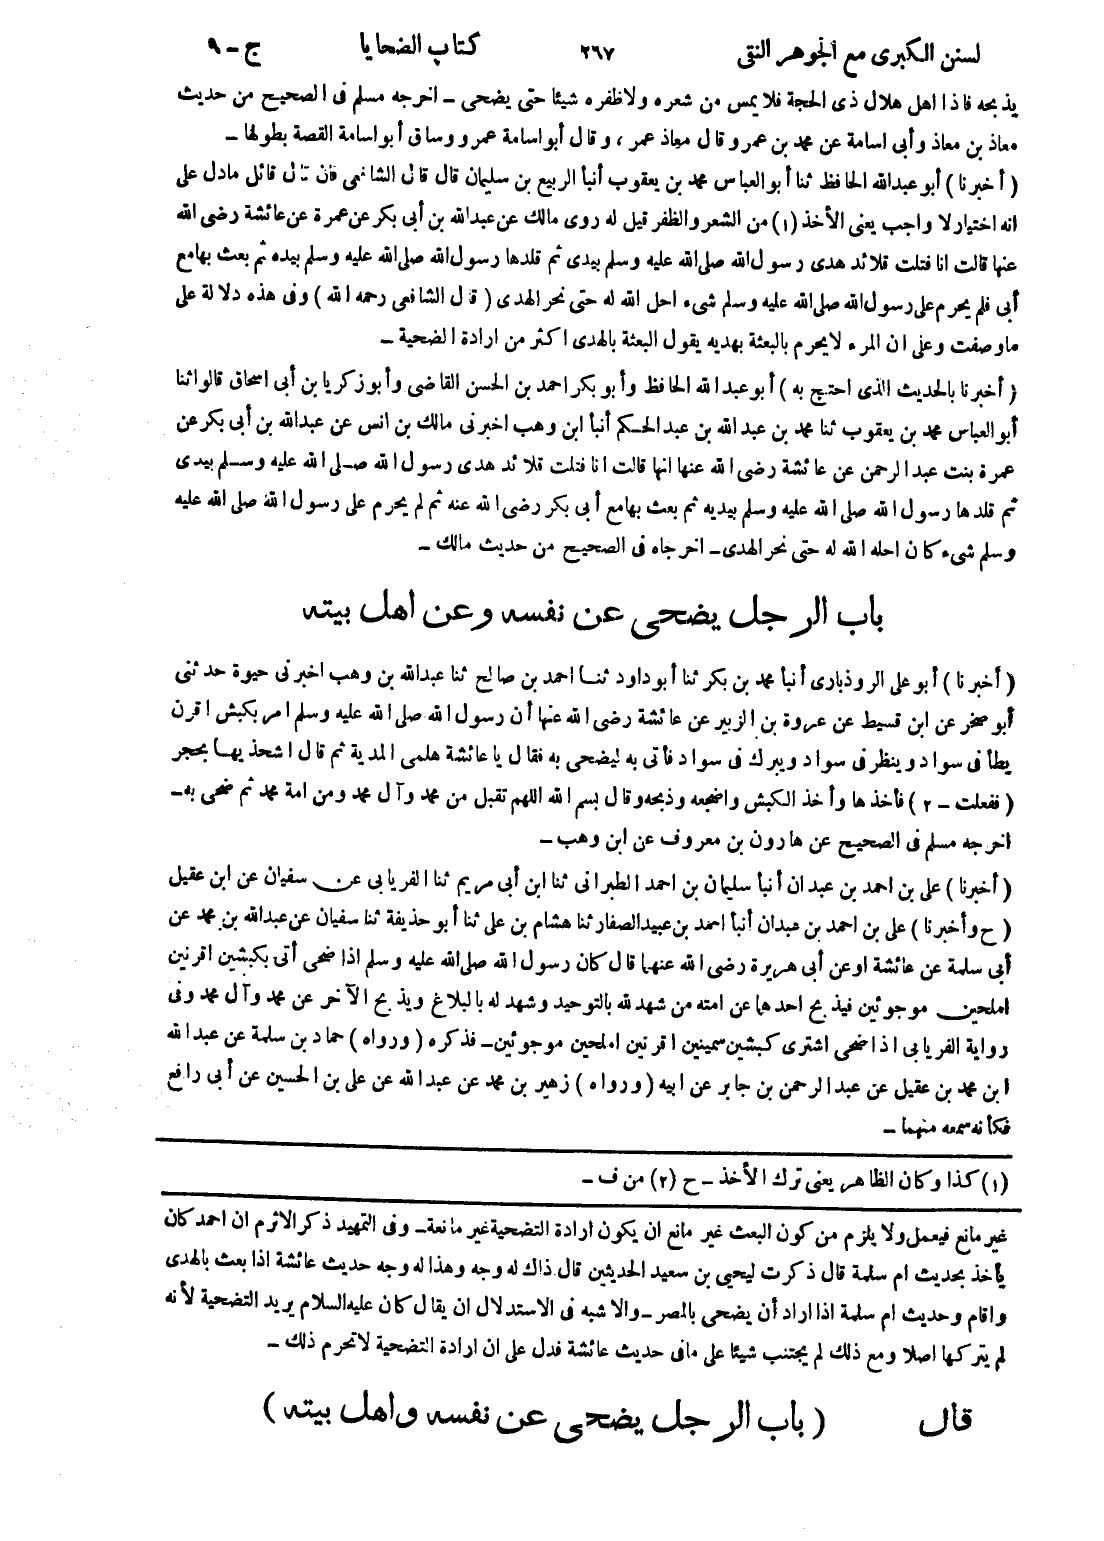 لسنن الكبرى مع الجوهر النقى ٢٦٧ كتاب الضحايا ج - ٩
يذبحه فاذا اهل هلال ذى الحجة فلا يمس من شعره ولا ظفره شيئا حتى يضحى - اخرجه مسلم فى الصحيح من حديث
معاذ بن معاذ وأبى اسامة عن محمد بن عمرو قال معاذ عمر ، و قال أبو اسامة عمرو وساق أبو اسامة القصة بطولها -
( أخبرنا ) أبو عبدالله الحافظ ثنا أبو العباس محمد بن يعقوب أنبأ الربيع بن سليمان قال قال الشافعى فان قال قائل مادل على
انه اختيار لا واجب يعنى الأخذ (١) من الشعر والظفر قيل له روى مالك عن عبدالله بن أبى بكر عن عمرة عن عائشة رضى الله
عنها قالت انا فتلت قلائد هدى رسول الله صلى الله عليه وسلم بيدى ثم قلدها رسول الله صلى الله عليه وسلم بيده ثم بعث بها مع
أبى فلم يحرم على رسول الله صلى الله عليه وسلم شىء احل الله له حتى نحر الهدى ( قال الشافعى رحمه الله ) وفى هذه دلالة على
ما وصفت وعلى ان المرء لا يحرم بالبعثة بهديه يقول البعثة بالهدى اكثر من ارادة الضحية -
( أخبرنا بالحديث الذى احتج به ) أبو عبد الله الحافظ وأبو بكر احمد بن الحسن القاضى وأبو زكريا بن أبى اسحاق قالوا ثنا
أبو العباس محمد بن يعقوب ثنا محمد بن عبد الله بن عبد الحكم أنبأ ابن وهب اخبرنى مالك بن انس عن عبدالله بن أبى بكر عن
عمرة بنت عبد الرحمن عن عائشة رضى الله عنها انها قالت انا فتلت قلائد هدى رسول الله صلى الله عليه وسلم بيدى
ثم قلدها رسول الله صلى الله عليه وسلم بيديه ثم بعث بها مع أبى بكر رضى الله عنه ثم لم يحرم على رسول الله صلى الله عليه
وسلم شىء كان احله الله له حتى نحر الهدى - اخرجاه فى الصحيح من حديث مالك -
باب الرجل يضحى عن نفسه وعن اهل بيته
( أخبرنا ) أبو على الروذبارى أنبأ محمد بن بكر ثنا أبو داود ثنا احمد بن صالح ثنا عبدالله بن وهب اخبرنى حيوة حدثنى
أبو صخر عن ابن قسيط عن عروة بن الزبير عن عائشة رضى الله عنها أن رسول الله صلى الله عليه وسلم امر بكبش اقرن
يطأ فى سواد وينظر فى سواد ويبرك فى سواد فأتى به ليضحى به فقال يا عائشة هلمى المدية ثم قال اشحذيها بحجر
( ففعلت - ٢ ) فأخذها وأخذ الكبش واضجعه وذبحه وقال بسم الله اللهم تقبل من محمد وآل محمد ومن امة محمد ثم ضحى به -
اخرجه مسلم فى الصحيح عن هارون بن معروف عن ابن وهب -
( أخبرنا ) على بن احمد بن عبدان أنبأ سليمان بن احمد الطبرانى ثنا ابن أبى مريم ثنا الفريابى عن سفيان عن ابن عقيل
( ح وأخبرنا ) على بن احمد بن عبدان أنبأ احمد بن عبيد الصفار ثنا هشام بن على ثنا أبو حذيفة ثنا سفيان عن عبدالله بن محمد عن
أبى سلمة عن عائشة او عن أبى هريرة رضى الله عنهما قال كان رسول الله صلى الله عليه وسلم اذا ضحى أتى بكبشين اقرنين
املحين موجوئين فيذبح احدهما عن امته من شهد لله بالتوحيد وشهد له بالبلاغ ويذبح الآخر عن محمد وآل محمد وفى
رواية الفريابى اذا ضحى اشترى كبشين سمينين اقرنين املحين موجوئين - فذكره ( ورواه ) حماد بن سلمة عن عبد الله
ابن محمد بن عقيل عن عبد الرحمن بن جابر عن ابيه ( ورواه ) زهير بن محمد عن عبد الله عن على بن الحسين عن أبى رافع
فكأنه سمعه منهما -
(١) كذا وكان الظاهر يعنى ترك الأخذ - ح (٢) من ف -
غير مانع فيعمل ولا يلزم من كون البعث غير مانع ان يكون ارادة التضحية غير مانعة - وفى التمهيد ذكر الاثرم ان احمد كان
يأخذ بحديث ام سلمة قال ذكرت ليحيى بن سعيد الحديثين قال ذاك له وجه وهذا له وجه حديث عائشة اذا بعث بالهدى
واقام وحديث ام سلمة اذا اراد أن يضحى بالمصر - والاشبه فى الاستدلال ان يقال كان عليه السلام يريد التضحية لأنه
لم يتركها اصلا ومع ذلك لم يجتنب شيئا على مافى حديث عائشة فدل على ان ارادة التضحية لا تحرم ذلك -
قال ( باب الرجل يضحى عن نفسه واهل بيته )